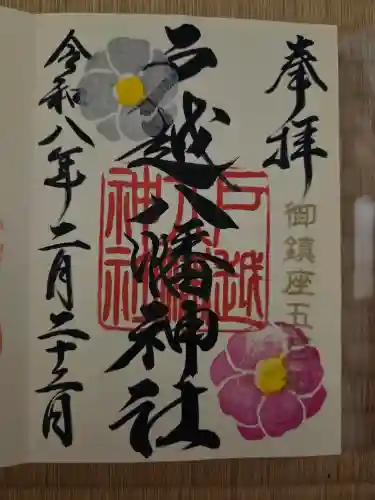 奉拝
御鎮座五百
戸越八幡神社
戸越八幡神社
令和八年二月二十三日